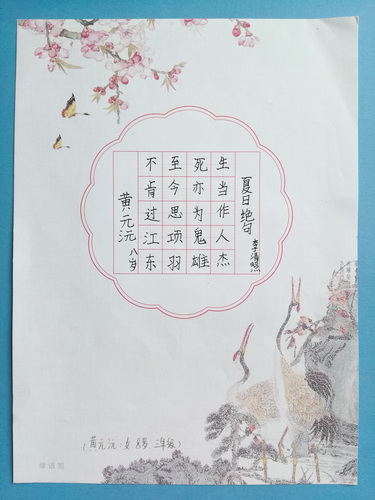 夏日绝句
李清照
生当作人杰
死亦为鬼雄
至今思项羽
不肯过江东
黄元沅 八岁
(黄元沅:女 8岁 三年级)